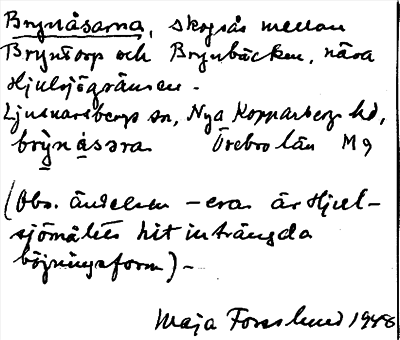 Brynåsarna, skogsås mellan
Bryntorp och Brynbäcken, nära
Hjulsjögränsen.
Ljusnarsbergs sn, Nya Kopparbergs hd,
brỳnásəra Örebro län M9
(Obs. ändelsen -era är Hjul-
sjömålets hit inträngda
böjningsform) -
Maja Forsslund 1948